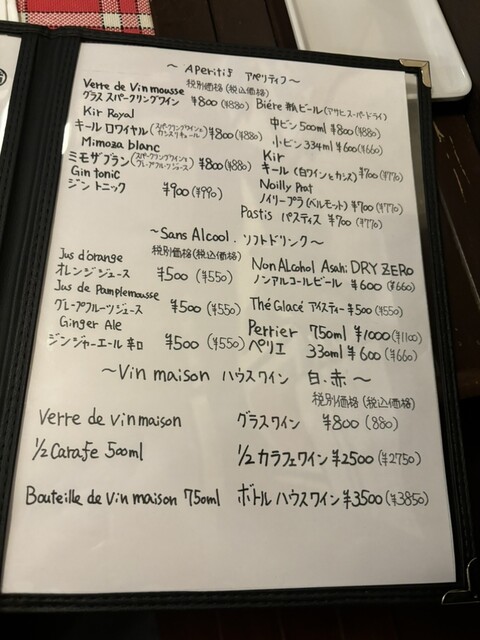 ～ Aperitif アペリティフ～
Verre de Vin mousse 税別価格(税込価格)
グラス スパークリングワイン ¥800(¥880)
Kir Royal
キールロワイヤル(スパークリングワイン&カシスリキュール) ¥800(¥880)
Mimoza blanc
ミモザブラン(スパークリングワイン&グレープフルーツジュース) ¥800(¥880)
Gin tonic
ジントニック ¥900(¥990)
Biére 瓶ビール(アサヒスーパードライ)
中ビン 500ml ¥800(¥880)
小ビン 334ml ¥600(¥660)
Kir
キール(白ワインとカシス) ¥700(¥770)
Noilly Prat
ノイリープラ(ベルモット) ¥700(¥770)
Pastis パスティス ¥700(¥770)
～Sans Alcool. ソフトドリンク～
Jus d'orange 税別価格(税込価格)
オレンジジュース ¥500(¥550)
Jus de Pamplemousse
グレープフルーツジュース ¥500(¥550)
Ginger Ale
ジンジャーエール 辛口 ¥500(¥550)
Non ALcohol Asahi DRY ZERO
ノンアルコールビール ¥600(¥660)
Thé Glacé アイスティー ¥500(¥550)
Perrier 750ml ¥1000(¥1100)
ペリエ 330ml ¥600(¥660)
～Vin maison ハウスワイン 白.赤～
税別価格(税込価格)
Verre de vin maison グラスワイン ¥800(880)
1/2 Carafe 500ml 1/2 カラフェワイン ¥2500(¥2750)
Bouteille de vin maison 750ml ボトルハウスワイン ¥3500(¥3850)